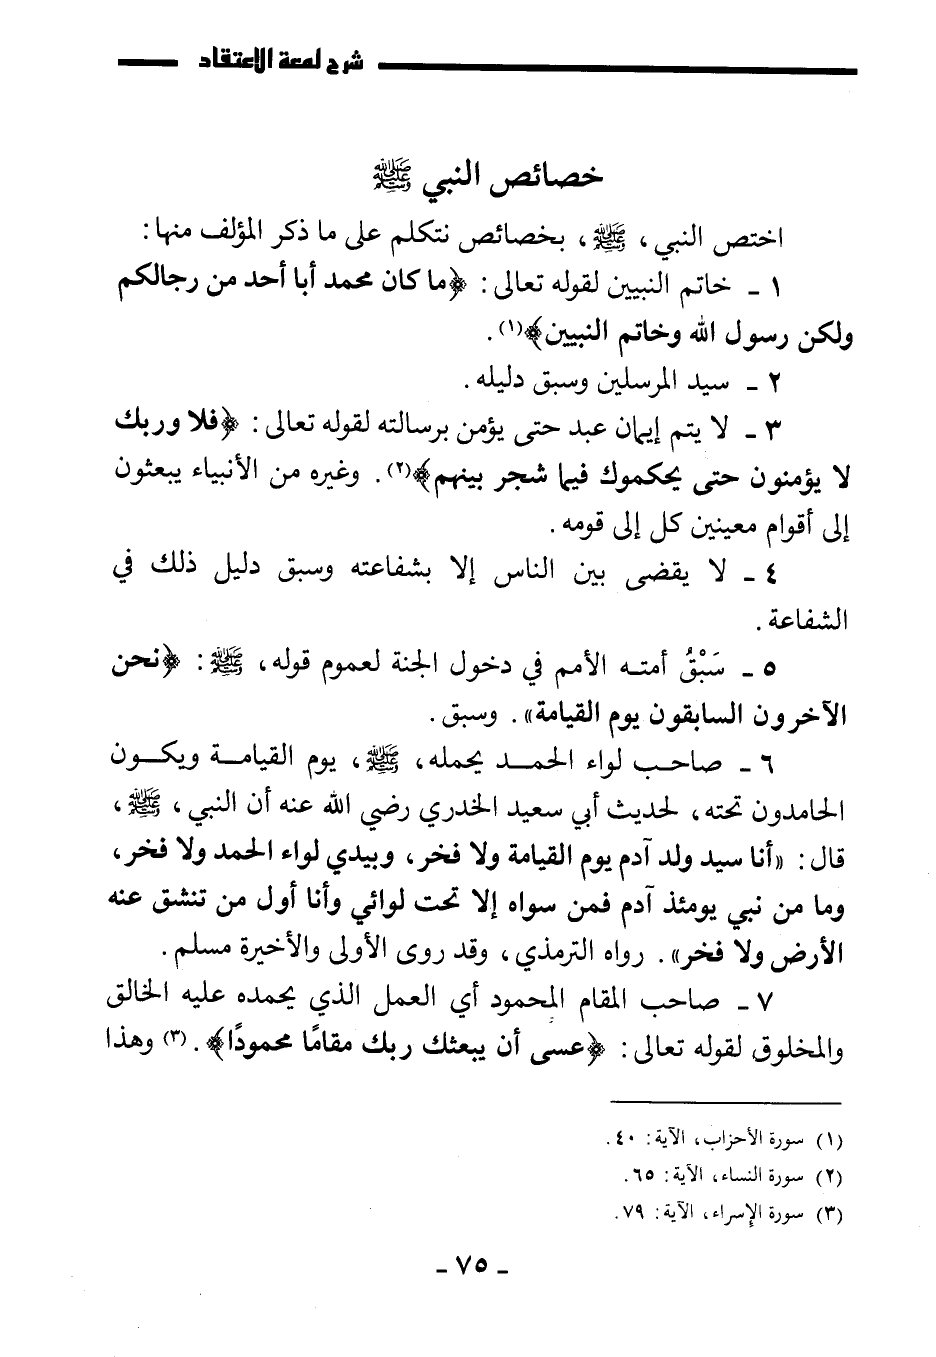 شرح لمعة الإعتقاد
خصائص النبي ﷺ
اختص النبي، ﷺ، بخصائص نتكلم على ما ذكر المؤلف منها:
١ ـ خاتم النبيين لقوله تعالى: ﴿ما كان محمد أبا أحد من رجالكم
ولكن رسول الله وخاتم النبيين﴾(١).
٢ ـ سيد المرسلين وسبق دليله.
٣ ـ لا يتم إيمان عبد حتى يؤمن برسالته لقوله تعالى: ﴿فلا وربك
لا يؤمنون حتى يحكموك فيما شجر بينهم﴾(٢). وغيره من الأنبياء يبعثون
إلى أقوام معينين كل إلى قومه.
٤ ـ لا يقضى بين الناس إلا بشفاعته وسبق دليل ذلك في
الشفاعة.
٥ ـ سَبْقُ أمته الأمم في دخول الجنة لعموم قوله، ﷺ: ﴿نحن
الآخرون السابقون يوم القيامة». وسبق.
٦ ـ صاحب لواء الحمد يحمله، ﷺ، يوم القيامة ويكون
الحامدون تحته، لحديث أبي سعيد الخدري رضي الله عنه أن النبي، ﷺ،
قال: «أنا سيد ولد آدم يوم القيامة ولا فخر، وبيدي لواء الحمد ولا فخر،
وما من نبي يومئذ آدم فمن سواه إلا تحت لوائي وأنا أول من تنشق عنه
الأرض ولا فخر». رواه الترمذي، وقد روى الأولى والأخيرة مسلم.
٧ ـ صاحب المقام المحمود أي العمل الذي يحمده عليه الخالق
والمخلوق لقوله تعالى: ﴿عسى أن يبعثك ربك مقامًا محمودًا﴾.(٣) وهذا
(١) سورة الأحزاب، الآية: ٤٠.
(٢) سورة النساء، الآية: ٦٥.
(٣) سورة الإسراء، الآية: ٧٩.
ـ ٧٥ ـ